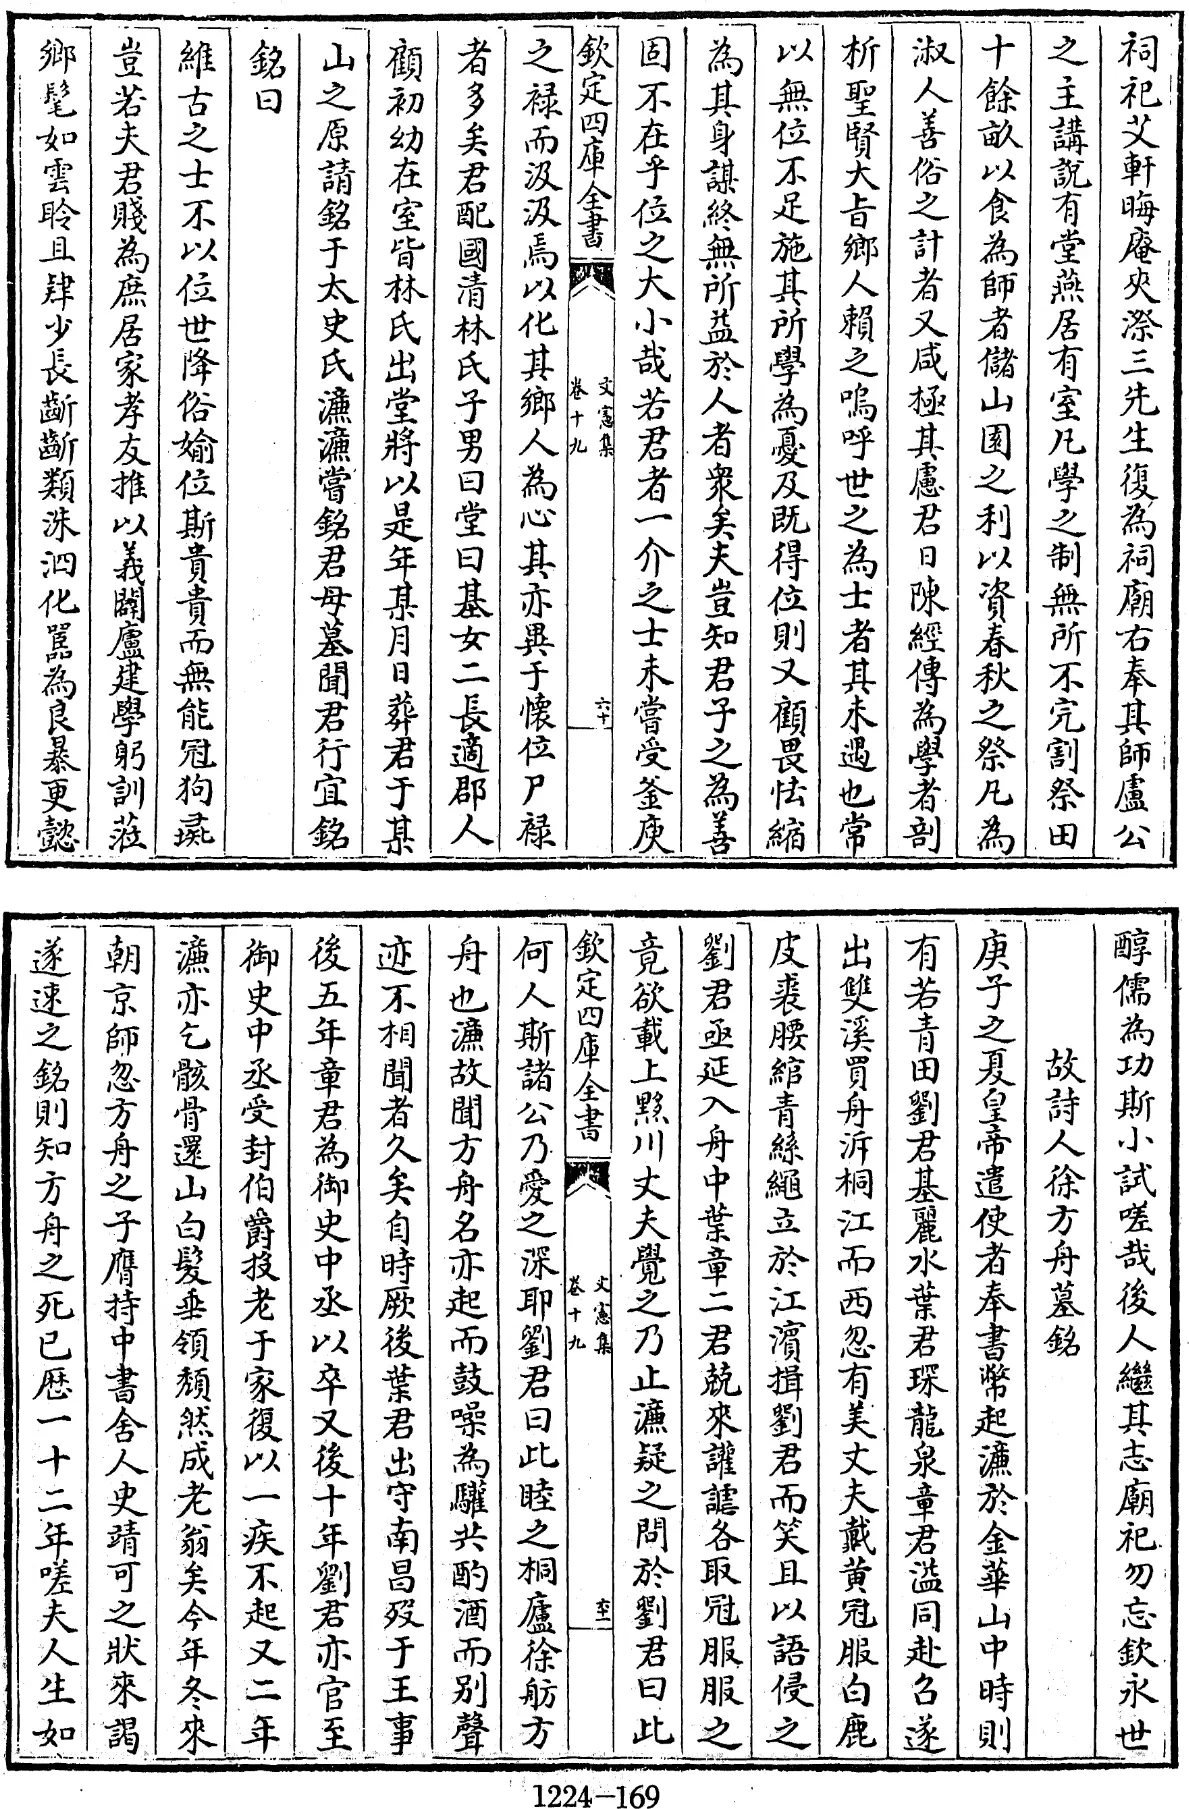 祠祀艾軒晦庵夾漈三先生復為祠廟右奉其師盧公
之主講說有堂燕居有室凡學之制無所不完割祭田
十餘畝以食為師者儲山園之利以資春秋之祭凡為
淑人善俗之計者又咸極其慮君日陳經傳為學者剖
析聖賢大旨鄉人賴之嗚呼世之為士者其未遇也常
以無位不足施其所學為憂及既得位則又顧畏怯縮
為其身謀終無所益於人者衆矣夫豈知君子之為善
固不在乎位之大小哉若君者一介之士未嘗受釜庾
欽定四庫全書
文憲集
卷十九
六十
之祿而汲汲焉以化其鄉人為心其亦異于懷位尸祿
者多矣君配國清林氏子男曰堂曰基女二長適郡人
顧初幼在室皆林氏出堂將以是年某月日葬君于某
山之原請銘于太史氏濂濂嘗銘君母墓聞君行宜銘
銘曰
維古之士不以位世降俗媮位斯貴貴而無能冠狗彘
豈若夫君賤為庶居家孝友推以義闢廬建學躬訓蒞
鄉髦如雲聆且肄少長齗齗類洙泗化嚚為良暴更懿
醇儒為功斯小試嗟哉後人繼其志廟祀勿忘欽永世
故詩人徐方舟墓銘
庚子之夏皇帝遣使者奉書幣起濂於金華山中時則
有若青田劉君基麗水葉君琛龍泉章君溢同赴召遂
出雙溪買舟泝桐江而西忽有美丈夫戴黃冠服白鹿
皮裘腰綰青絲繩立於江濱揖劉君而笑且以語侵之
劉君亟延入舟中葉章二君競來讙謔各取冠服服之
竟欲載上黟川丈夫覺之乃止濂疑之問於劉君曰此
欽定四庫全書
文憲集
卷十九
六十一
何人斯諸公乃愛之深耶劉君曰此睦之桐廬徐舫方
舟也濂故聞方舟名亦起而鼓噪為驩共酌酒而別聲
迹不相聞者久矣自時厥後葉君出守南昌歿于王事
後五年章君為御史中丞以卒又後十年劉君亦官至
御史中丞受封伯爵投老于家復以一疾不起又二年
濂亦乞骸骨還山白髮垂領頹然成老翁矣今年冬來
朝京師忽方舟之子膺持中書舍人史靖可之狀來謁
遂速之銘則知方舟之死已歷一十二年嗟夫人生如
1224—169